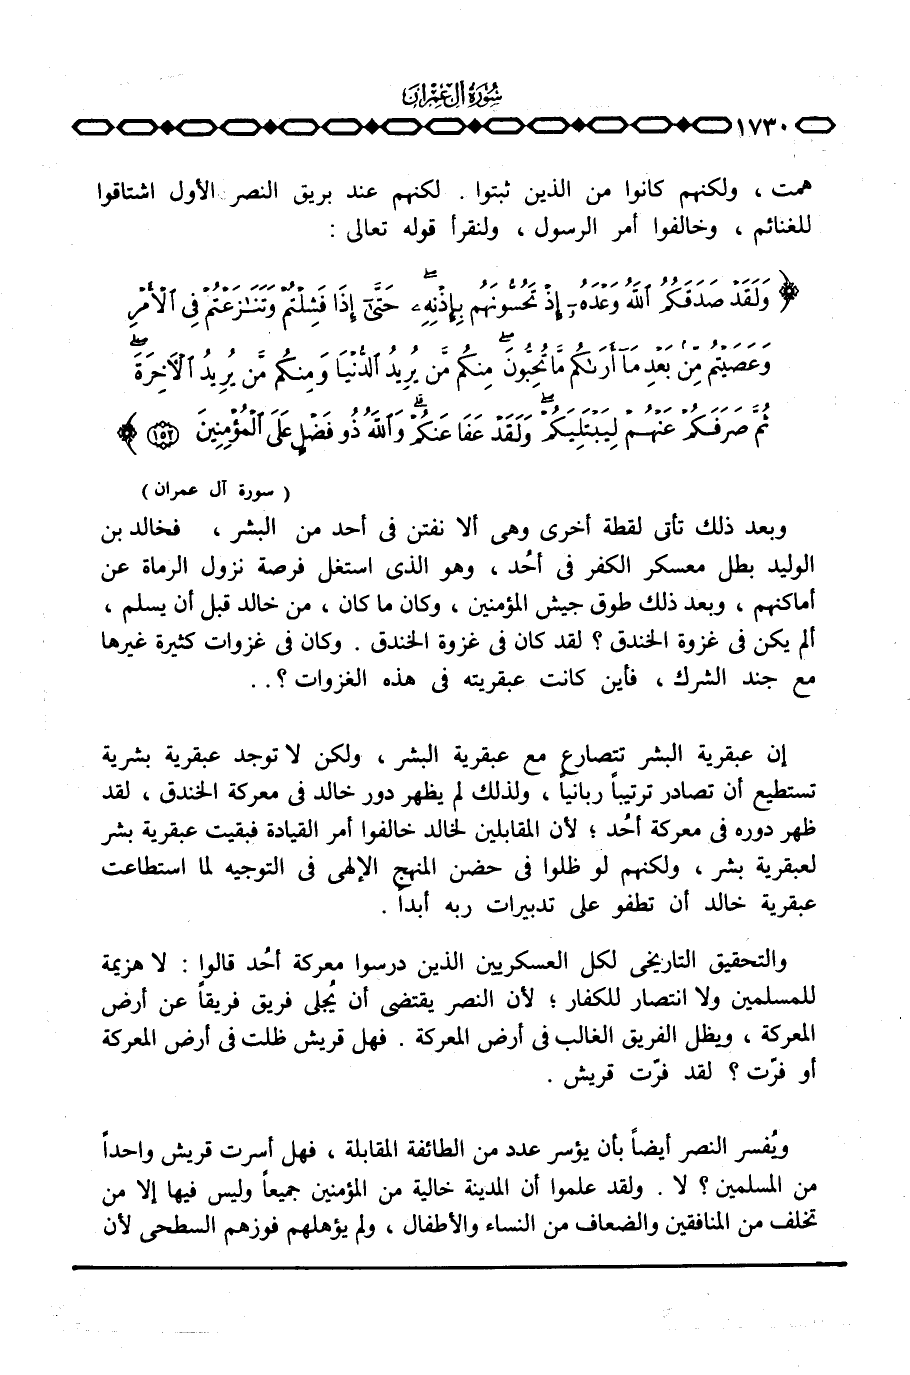 سُورَةُ آلِ عِمْرَانَ
١٧٣٠
همت ، ولكنهم كانوا من الذين ثبتوا . لكنهم عند بريق النصر الأول اشتاقوا
للغنائم ، وخالفوا أمر الرسول ، ولنقرأ قوله تعالى :
﴿ وَلَقَدْ صَدَقَكُمُ ٱللَّهُ وَعْدَهُۥٓ إِذْ تَحُسُّونَهُم بِإِذْنِهِۦ ۖ حَتَّىٰٓ إِذَا فَشِلْتُمْ وَتَنَٰزَعْتُمْ فِى ٱلْأَمْرِ
وَعَصَيْتُم مِّنۢ بَعْدِ مَآ أَرَىٰكُم مَّا تُحِبُّونَ ۚ مِنكُم مَّن يُرِيدُ ٱلدُّنْيَا وَمِنكُم مَّن يُرِيدُ ٱلْءَاخِرَةَ ۚ
ثُمَّ صَرَفَكُمْ عَنْهُمْ لِيَبْتَلِيَكُمْ ۖ وَلَقَدْ عَفَا عَنكُمْ ۗ وَٱللَّهُ ذُو فَضْلٍ عَلَى ٱلْمُؤْمِنِينَ ١٥٢ ﴾
( سورة آل عمران )
وبعد ذلك تأتى لقطة أخرى وهى ألا نفتن فى أحد من البشر ، فخالد بن
الوليد بطل معسكر الكفر فى أُحد ، وهو الذى استغل فرصة نزول الرماة عن
أماكنهم ، وبعد ذلك طوق جيش المؤمنين ، وكان ما كان ، من خالد قبل أن يسلم ،
ألم يكن فى غزوة الخندق ؟ لقد كان فى غزوة الخندق . وكان فى غزوات كثيرة غيرها
مع جند الشرك ، فأين كانت عبقريته فى هذه الغزوات ؟ . .
إن عبقرية البشر تتصارع مع عبقرية البشر ، ولكن لا توجد عبقرية بشرية
تستطيع أن تصادر ترتيباً ربانياً ، ولذلك لم يظهر دور خالد فى معركة الخندق ، لقد
ظهر دوره فى معركة أُحد ؛ لأن المقابلين لخالد خالفوا أمر القيادة فبقيت عبقرية بشر
لعبقرية بشر ، ولكنهم لو ظلوا فى حضن المنهج الإلهى فى التوجيه لما استطاعت
عبقرية خالد أن تطفو على تدبيرات ربه أبداً .
والتحقيق التاريخى لكل العسكريين الذين درسوا معركة أُحد قالوا : لا هزيمة
للمسلمين ولا انتصار للكفار ؛ لأن النصر يقتضى أن يُجلى فريق فريقاً عن أرض
المعركة ، ويظل الفريق الغالب فى أرض المعركة . فهل قريش ظلت فى أرض المعركة
أو فرّت ؟ لقد فرّت قريش .
ويُفسر النصر أيضاً بأن يؤسر عدد من الطائفة المقابلة ، فهل أسرت قريش واحداً
من المسلمين ؟ لا . ولقد علموا أن المدينة خالية من المؤمنين جميعاً وليس فيها إلا من
تخلف من المنافقين والضعاف من النساء والأطفال ، ولم يؤهلهم فوزهم السطحى لأن